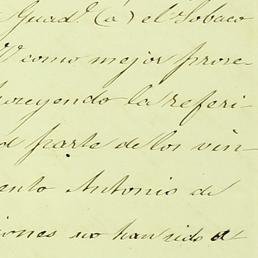 Guad.^e (a) el Tobaco
V como mejor proce
poyendo la referi-
d parte de los vin
ento Antonio de
iones no han sido de